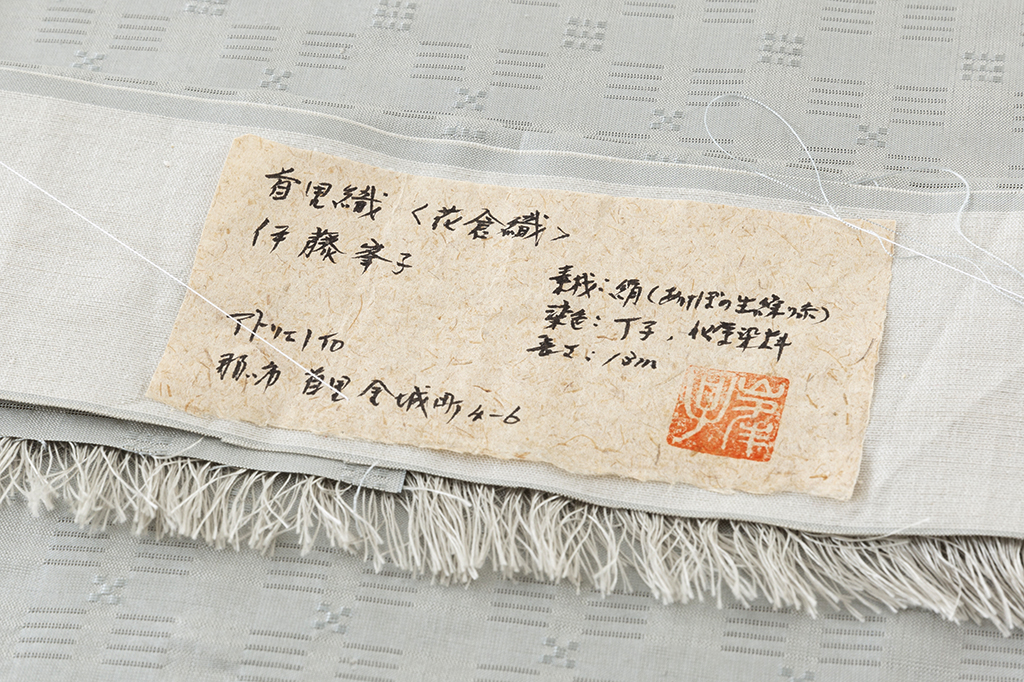 首里織〈花倉織〉
伊藤峯子
アトリエ ito
那覇市 首里金城町4-6
素材:絹(あけぼの生繰り糸)
染色:丁子、化学染料
長さ:13m